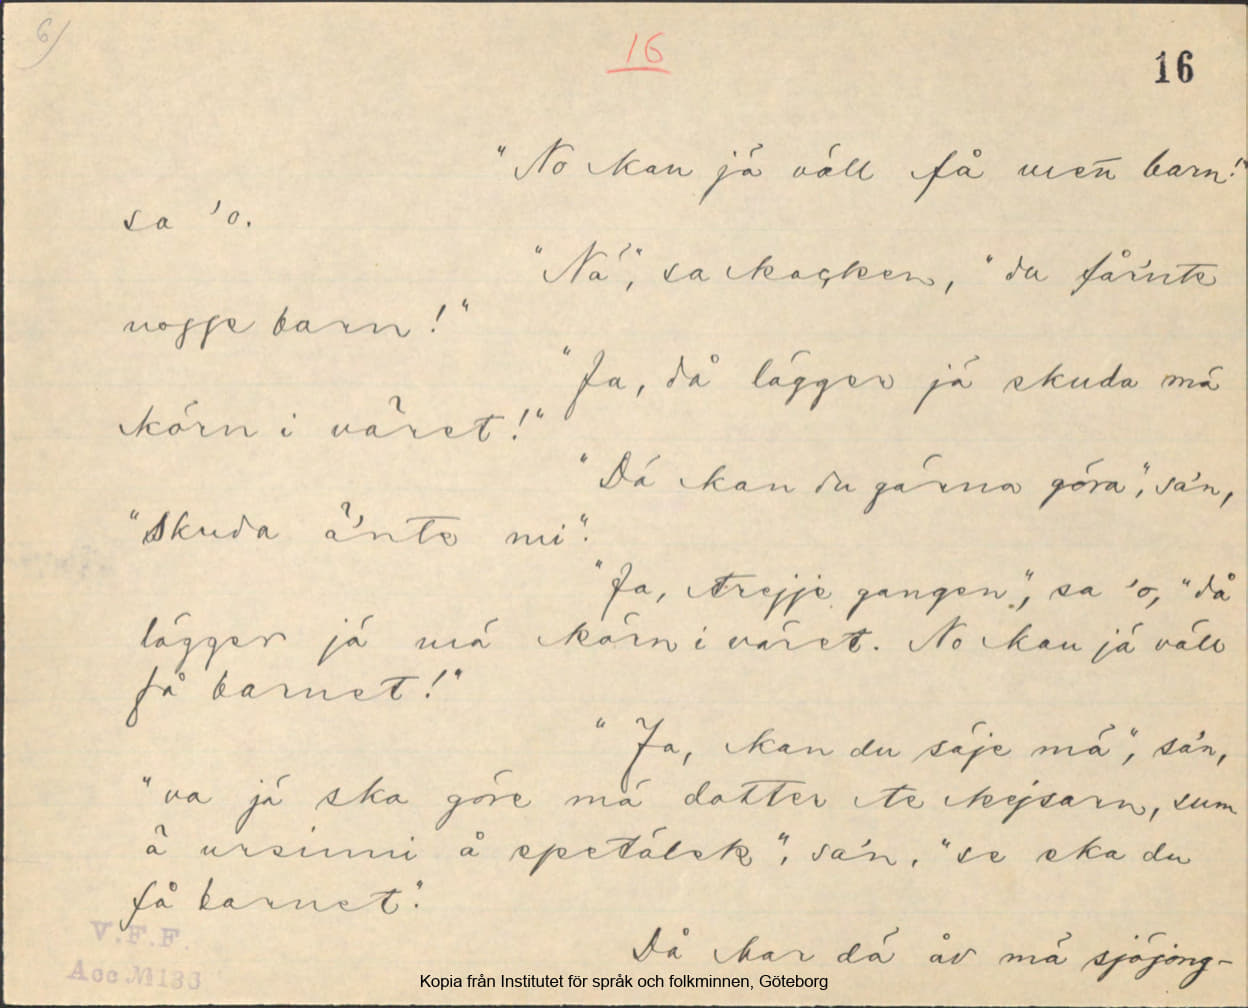 6)
16
16
"No kan já váll få men barn!"
sa 'o.
"Ná", sa kocken, "du få'nte
nogge barn!"
"Ja, då lágger já skuda má
kórn i váret!"
"Dá kan du gárna góra", sa'n,
"skuda ä'nte mi".
"Ja, trejje gangen", sa 'o, "då
lágger já má kórn i váret. No kan já váll
få barnet!"
"Ja, kan du sáje má", sa'n,
"va já ska góre má dotter te kejsarn, sum
ä ursinni å spetálsk", sa'n, "se ska du
få barnet".
Då bar dá åv má sjójong-
V.F.F.
Acc № 133
Kopia från Institutet för språk och folkminnen, Göteborg